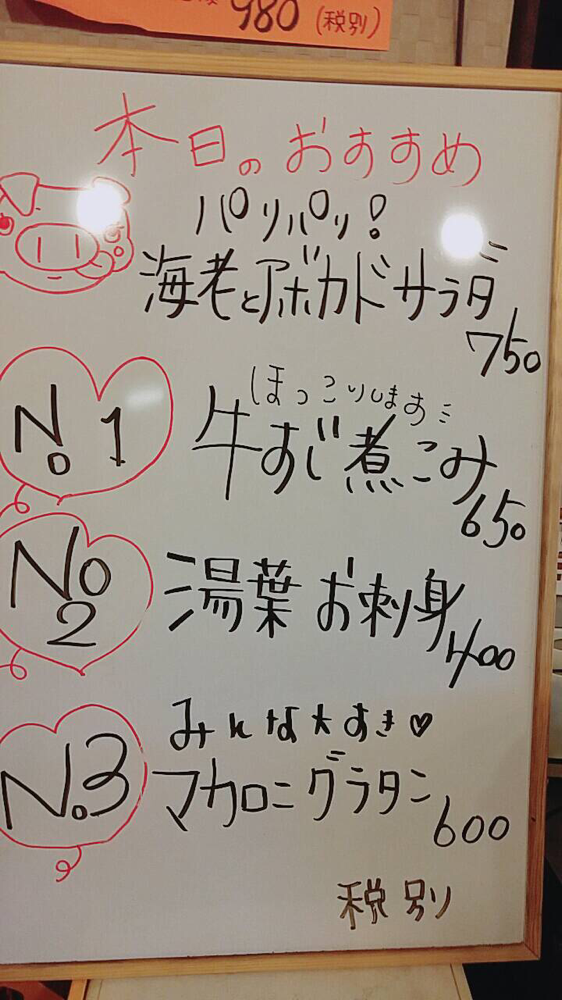 980 (税別)
本日のおすすめ
パリパリ!
海老とアボカドサラダ
750
No 1
ほっこりします
牛すじ煮こみ
650
No 2
湯葉 お刺身
400
みんな大すき♡
No.3
マカロニグラタン
600
税別